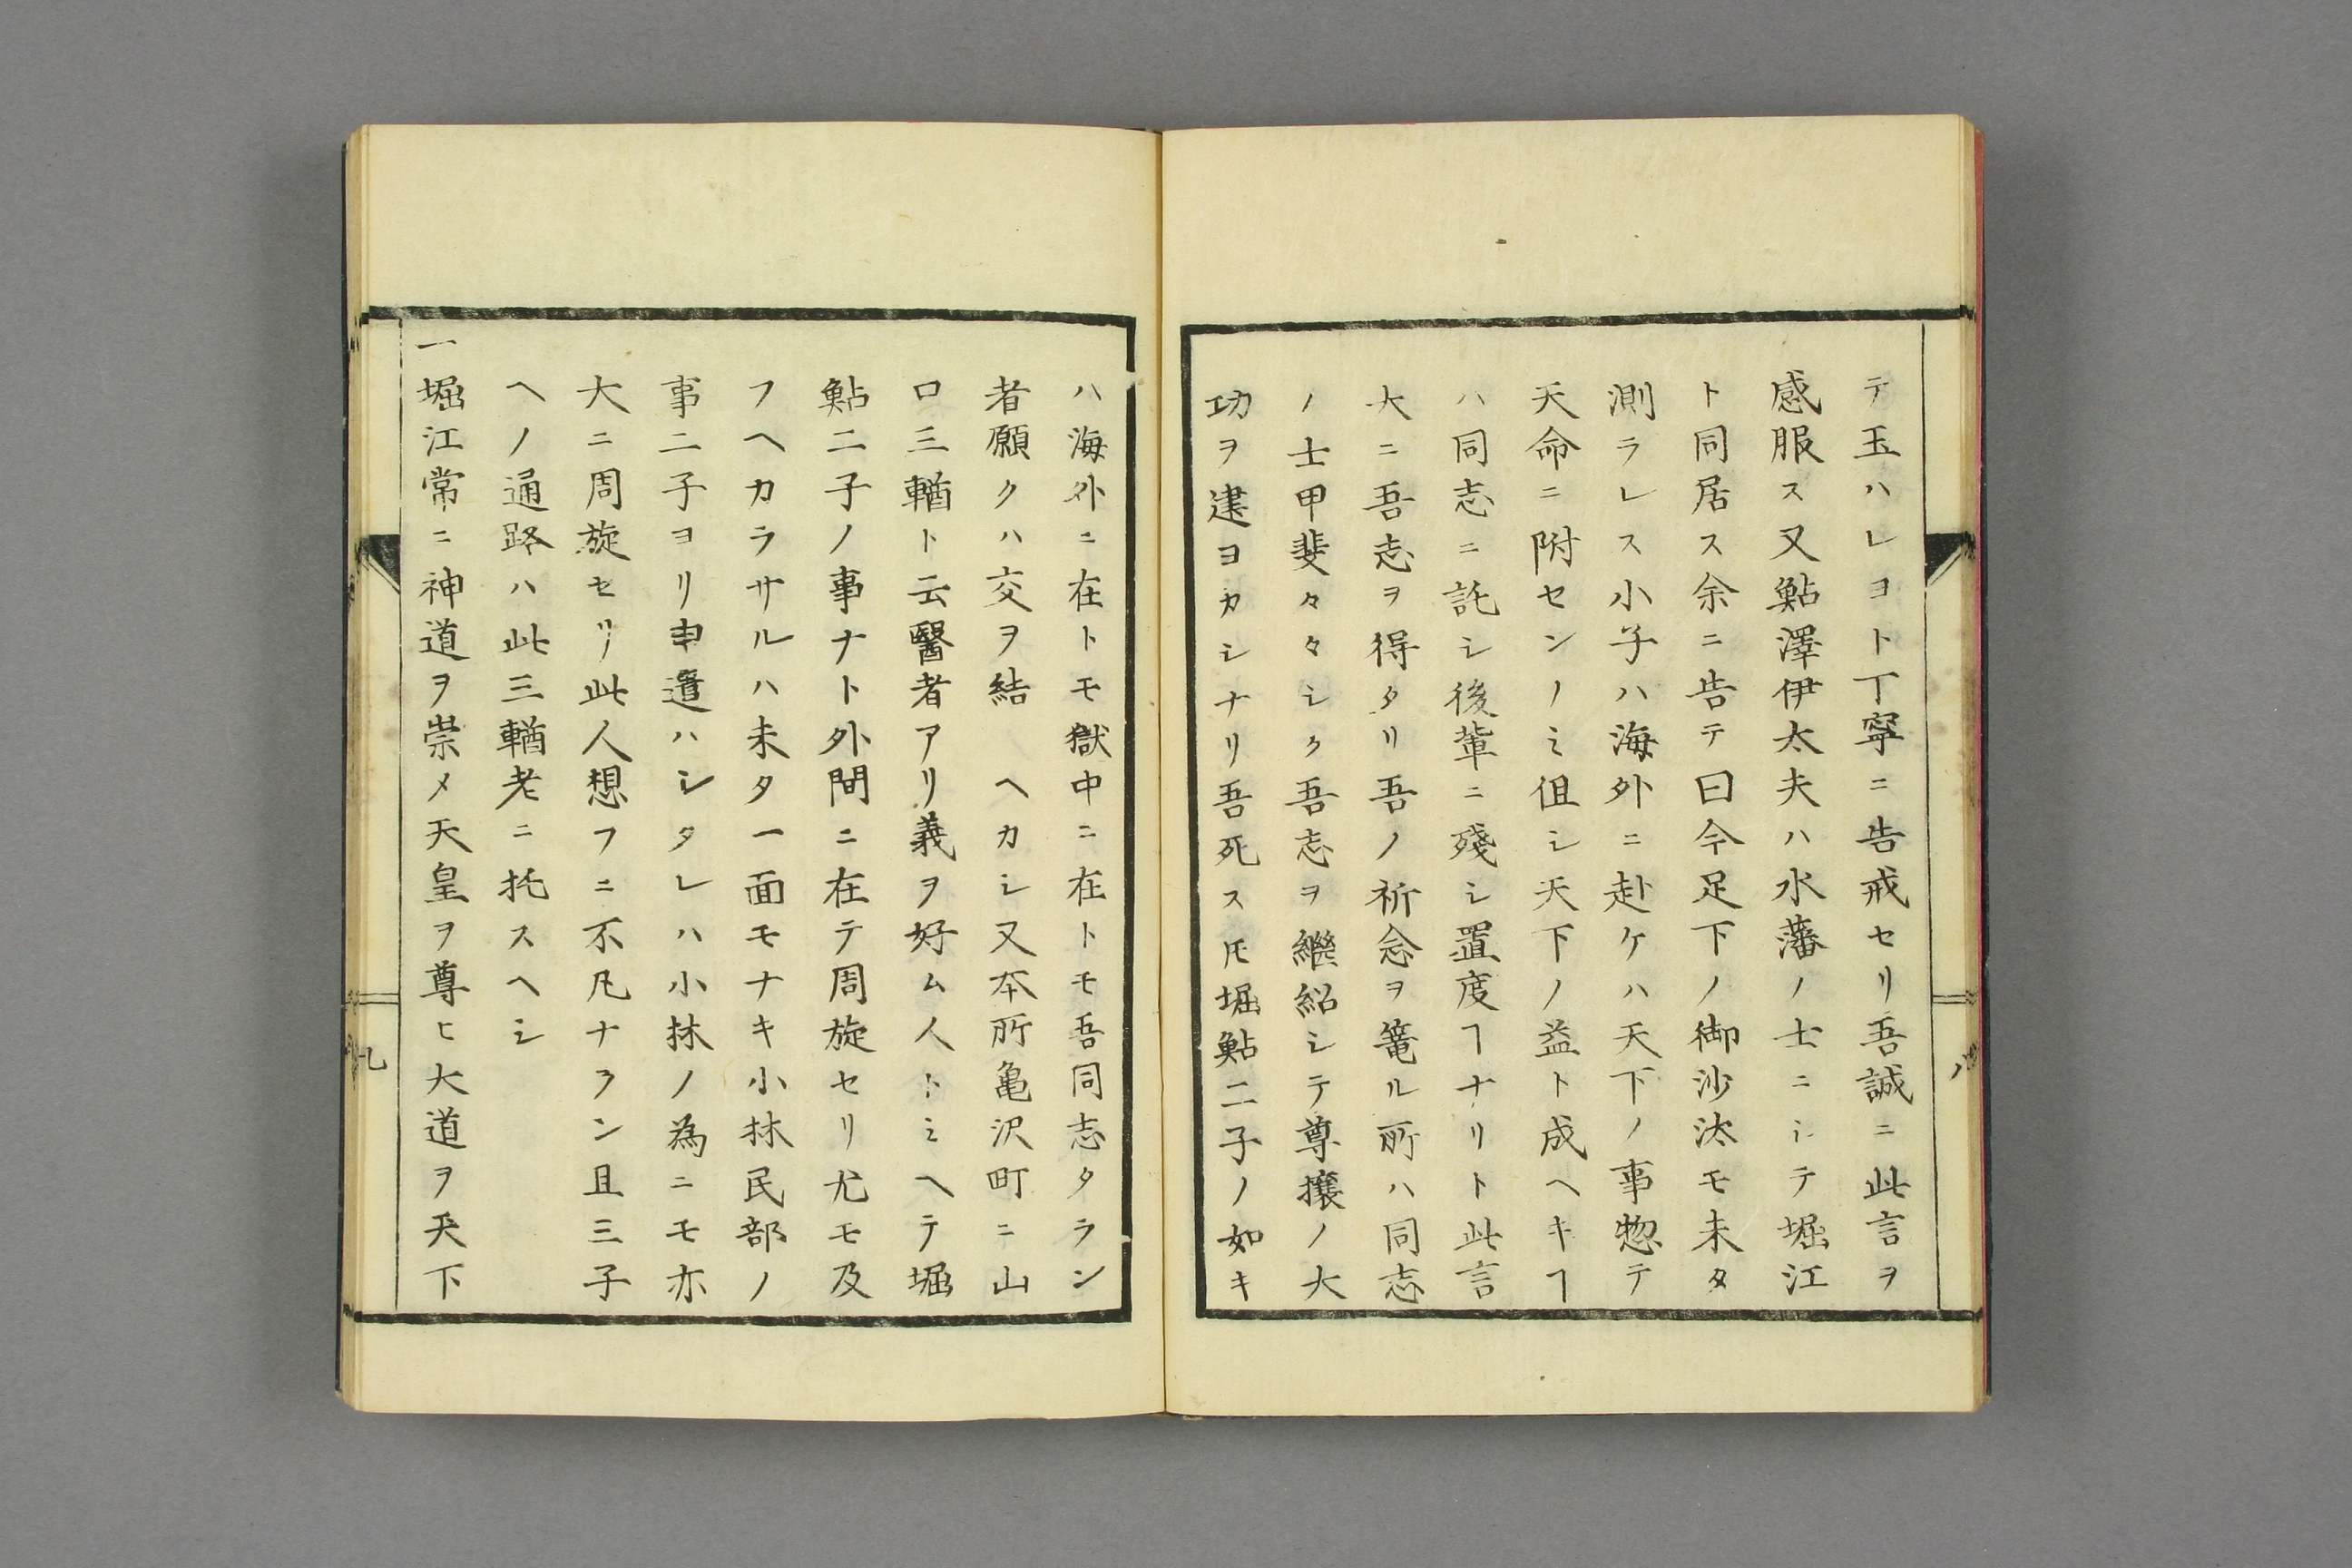 テ玉ハレヨト丁寧ニ告戒セリ吾誠ニ此言ヲ
感服ス又鮎澤伊太夫ハ水藩ノ士ニシテ堀江
ト同居ス余ニ告テ曰今足下ノ御沙汰モ未タ
測ラレス小子ハ海外ニ赴ケハ天下ノ事惣テ
天命ニ附センノミ但シ天下ノ益ト成ヘキヿ
ハ同志ニ託シ後輩ニ殘シ置度ヿナリト此言
大ニ吾志ヲ得タリ吾ノ祈念ヲ篭ル所ハ同志
ノ士甲斐々々シク吾志ヲ繼紹シテ尊攘ノ大
功ヲ建ヨカシナリ吾死ス𪜈堀鮎二子ノ如キ
八
ハ海外ニ在トモ獄中ニ在トモ吾同志タラン
者願クハ交ヲ結 ヘカシ又本所亀沢町ニ山
口三輶ト云醫者アリ義ヲ好ム人トミヘテ堀
鮎二子ノ事ナト外間ニ在テ周旋セリ尤モ及
フヘカラサルハ未タ一面モナキ小林民部ノ
事二子ヨリ申遣ハシタレハ小林ノ為ニモ亦
大ニ周旋セリ此人想フニ不凡ナラン且三子
ヘノ通路ハ此三輶老ニ托スヘシ
一堀江常ニ神道ヲ崇メ天皇ヲ尊ヒ大道ヲ天下
九